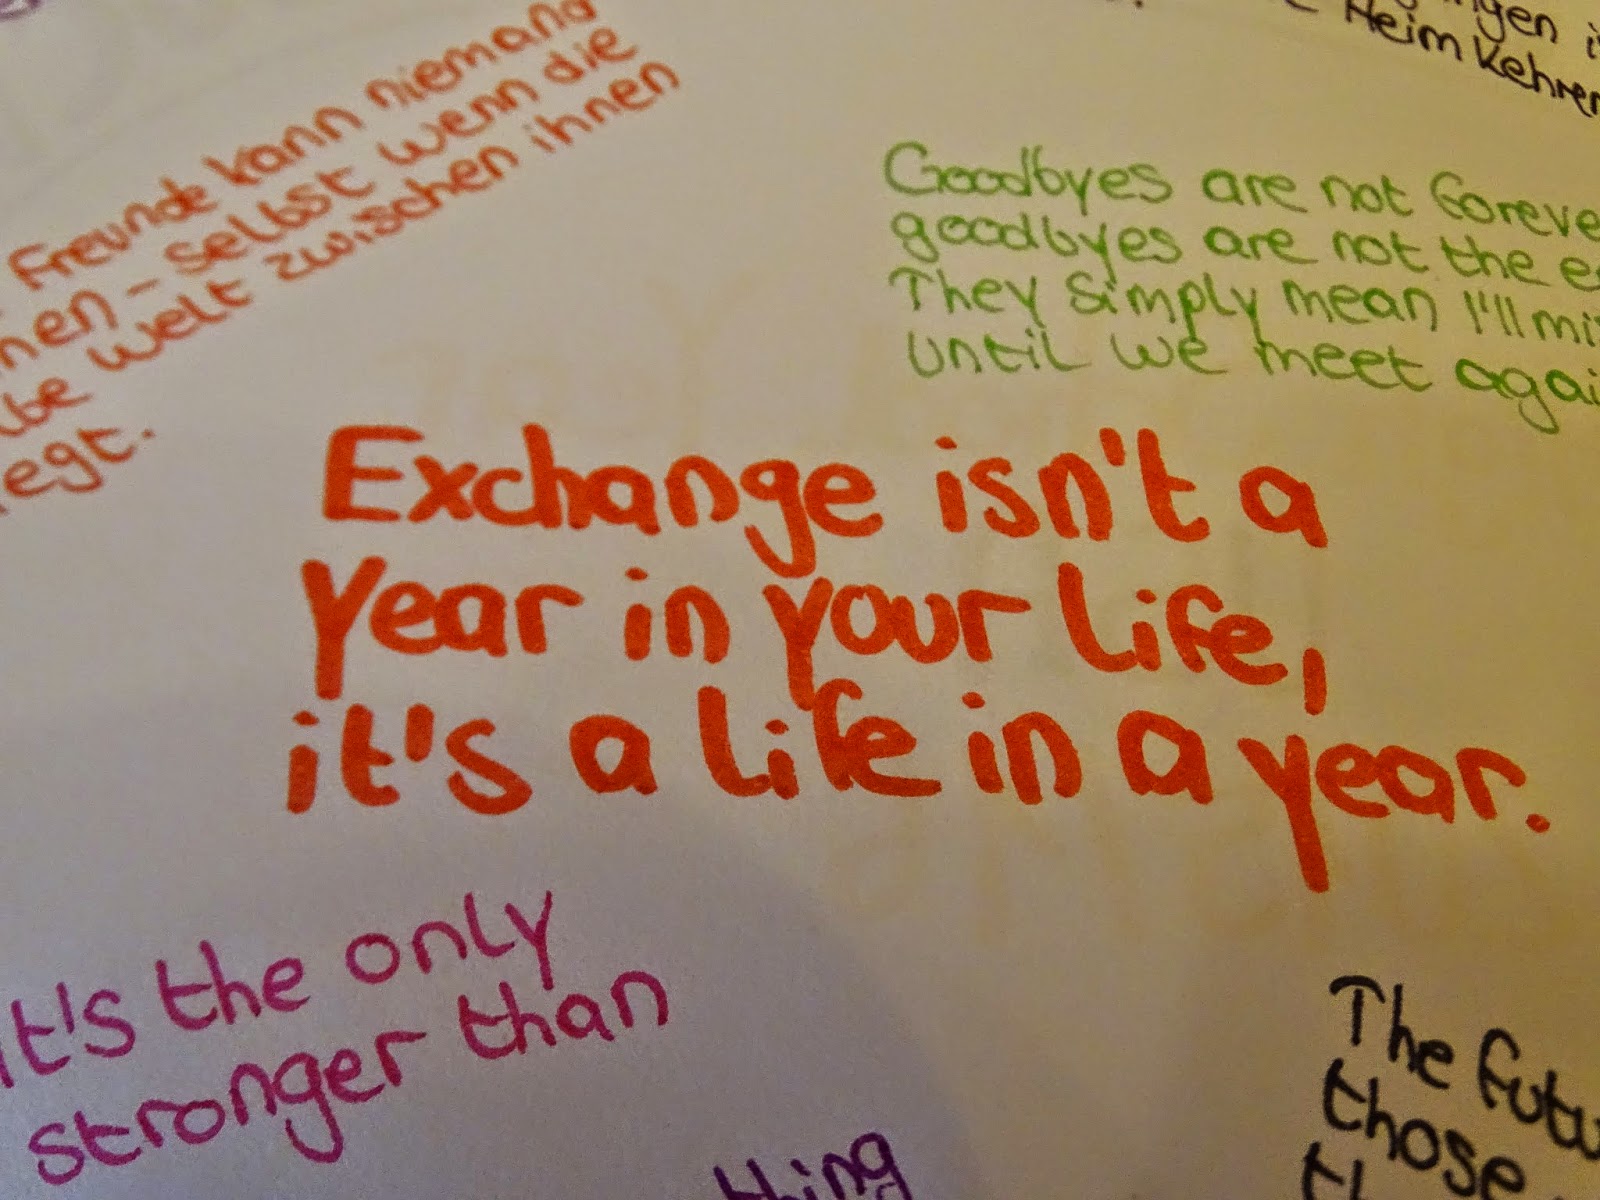 Freunde kann niemand
nen - selbst wenn die
be Welt zwischen ihnen
egt.
ngen i
Heimkehren
Goodbyes are not foreve
goodbyes are not the e
They simply mean I'll mi
until we meet agai
Exchange isn't a
year in your life,
it's a life in a year.
it's the only
stronger than
thing
The futu
those
th